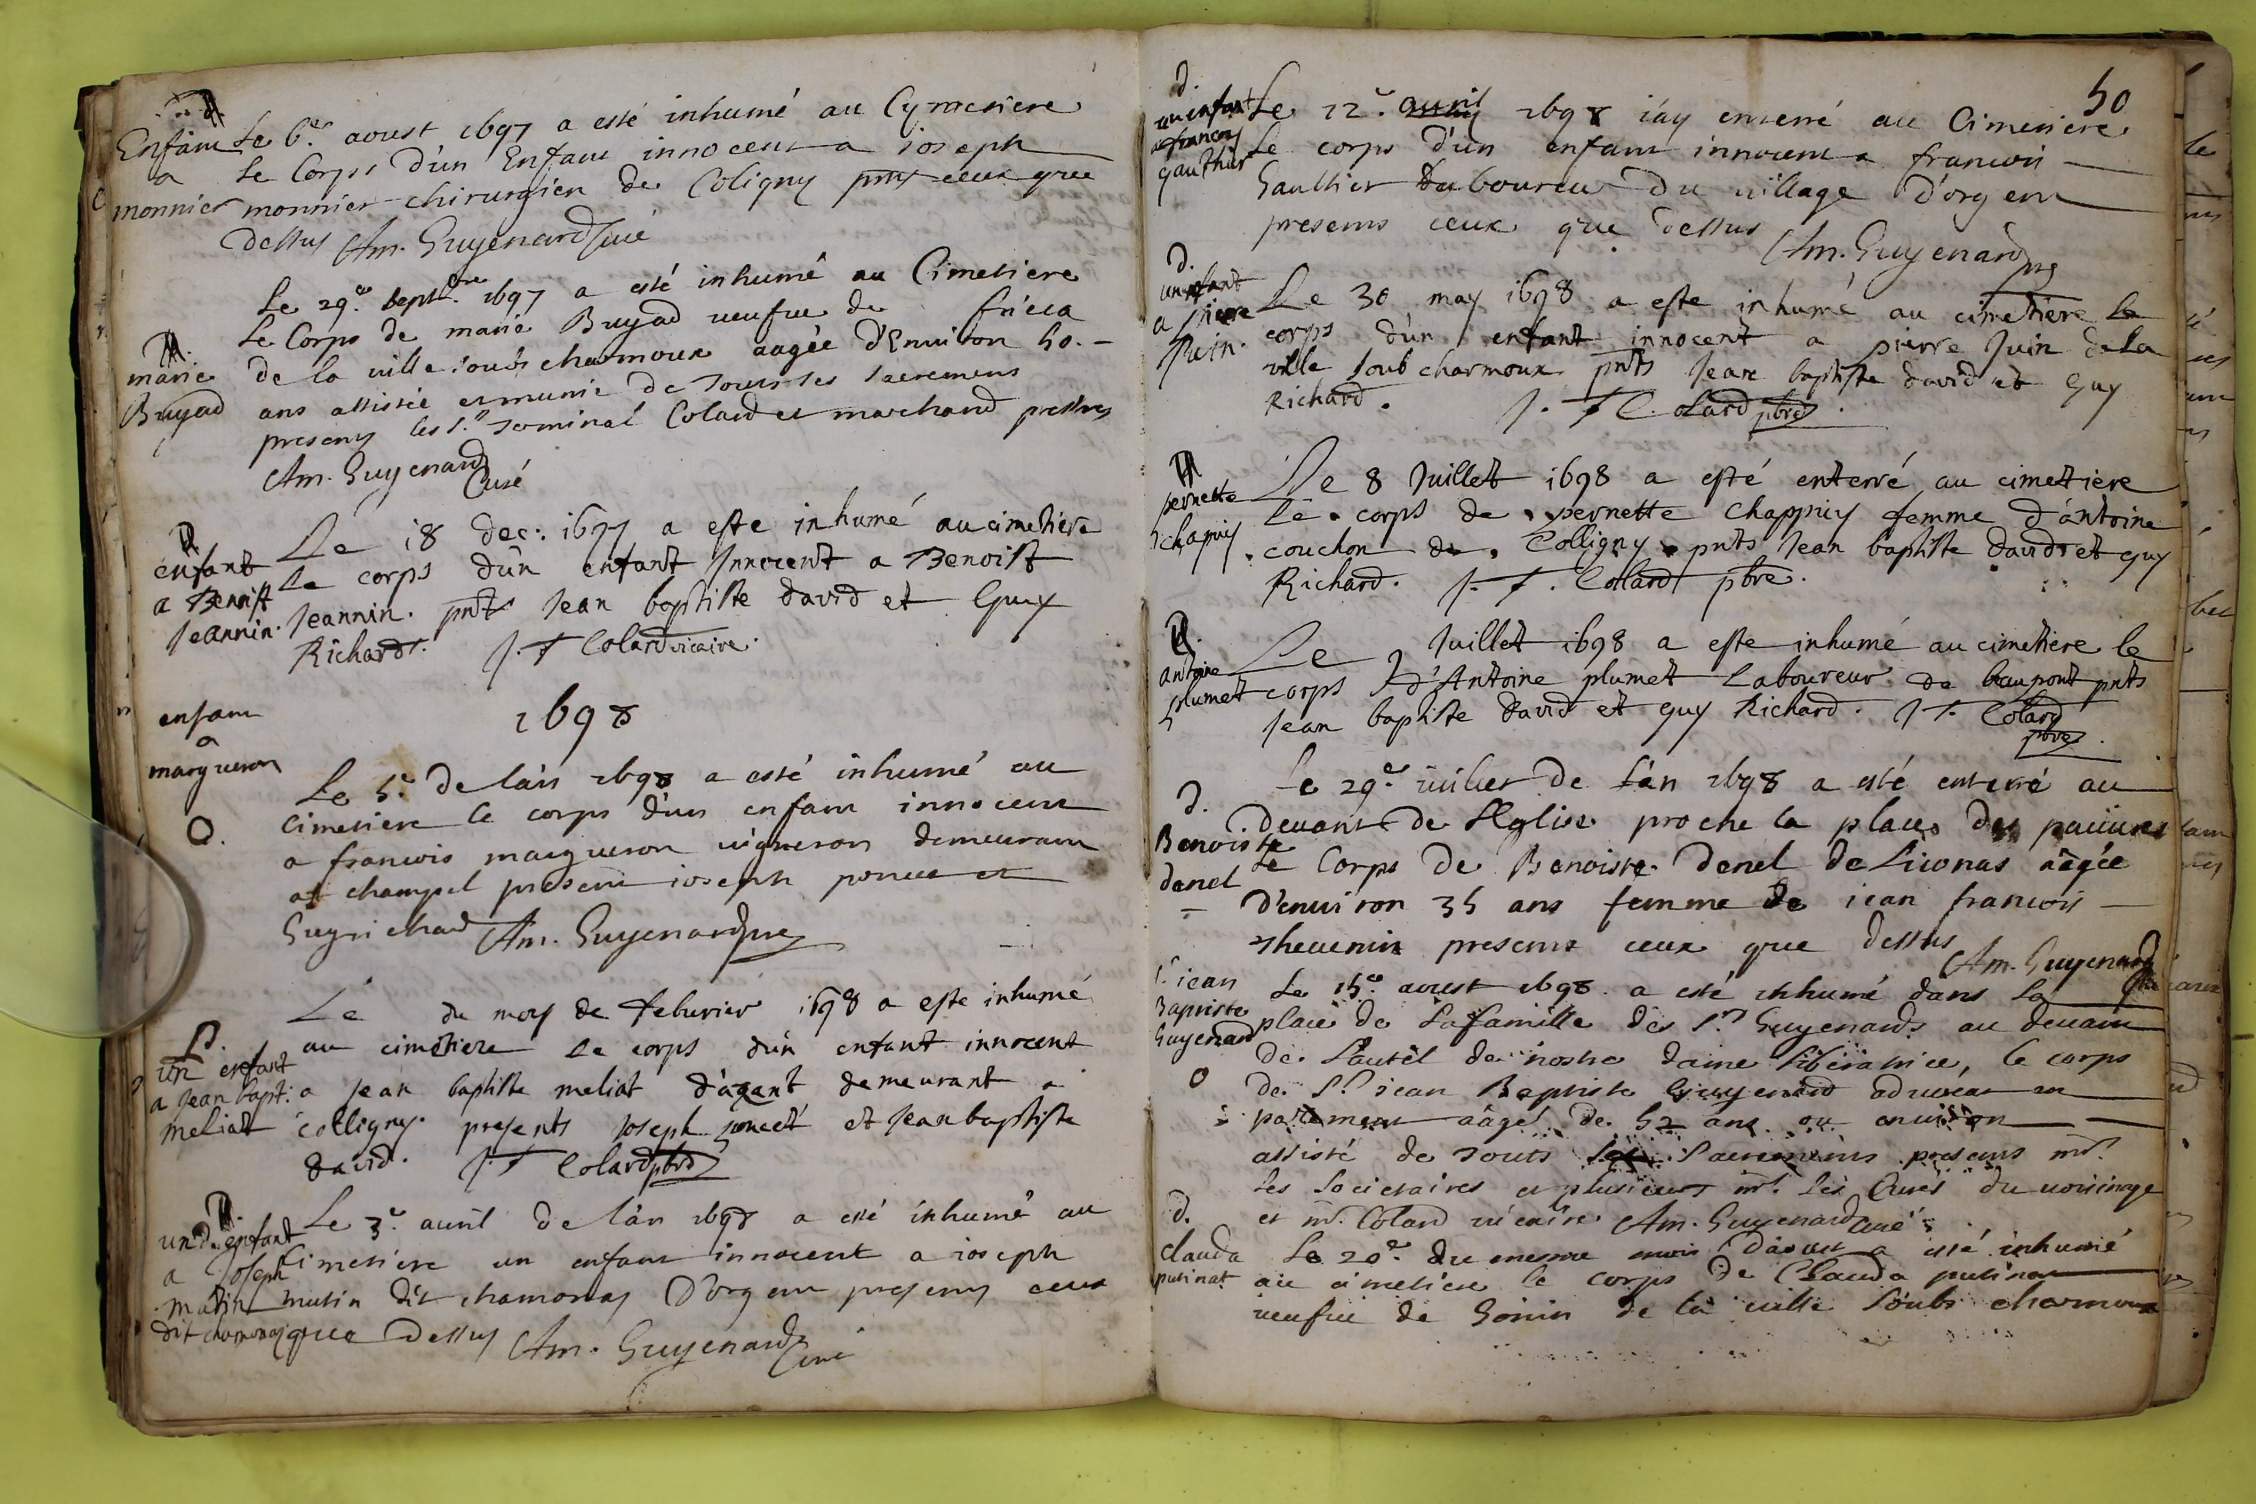 Enfant
a
monnier
Le 6.e aoust 1697 a esté inhumé au Cymetiere
Le Corps d'un Enfant innocent a joseph
monnier chirurgien de Coligny pnts ceux que
dessus Am. Guyenard Curé
marie
Buyad
Le 29.e Septbre 1697 a esté inhumé au Cimetiere
Le Corps de marie Buyad veufve de
de la ville soubs charmoux aagée d'Environ 50.
ans assistée et munie de tous les sacremens
presens les Srs Colard et marchand prestres
Am. Guyenard
Curé
enfant
a Benoist
Jeannin.
Le 18 dec: 1697 a este inhumé au cimetiere
le corps d'un enfant Innocent a Benoist
Jeannin. pnts Jean baptiste david et Guy
Richard. J. F Colard vicaire.
1698
enfant
a
margueron
Le 5.e De l'an 1698 a esté inhumé au
Cimetiere le corps d'un enfant innocent
a francois margueron vigneron demeurant
at champel present joseph poncet et
Guy richard Am. Guyenard
D.
un enfant
a Jean bapt:
meliat
Le du moys de feburier 1698 a este inhumé
au cimetiere le corps d'un enfant innocent
a Jean baptiste meliat d'agent demeurant a
colligny. presents Joseph poncet et Jean baptiste
david. J. F Colard pbre
un enfant
a Joseph
mutin
dit chamonay
Le 3.e avril De l'an 1698 a esté inhumé au
Cimetiere un enfant innocent a joseph
mutin dit chamonay D'orgent presens ceux
que Dessus Am. Guyenard Curé
50
d.
un enfant
a francoys
gauthier
Le 12.e avril 1698 j'ay enterré au Cimetiere
Le corps d'un enfant innocent a francois
Gaulthier Laboureur Du village D'orgent
presents ceux que Dessus
Am. Guyenard
d.
un enfant
a pierre
Juin.
Le 30 may 1698 a este inhumé au cimetiere le
corps d'un enfant innocent a pierre Juin de la
ville soub charmoux pnts Jean baptiste david et Guy
Richard. J. F Colard pbre.
pernette
chapuy
Le 8 Juillet 1698 a esté enterré au cimetiere
le corps de pernette chappuy femme d'Antoine
couchon de Colligny pnts Jean baptiste david et guy
Richard. J. F. Colard pbre.
antoine
plumet
Le 9 Juillet 1698 a este inhumé au cimetiere le
corps d'Antoine plumet Laboureur de beaupont pnts
Jean baptiste david et guy Richard. J F. Colard
pbre.
d.
Benoiste
danel
Le 29.e juillet De l'an 1698 a esté enterré au
devant de l'Eglise proche la place des pauvres
Le Corps De Benoiste Denel de Liconas aagée
D'environ 35 ans femme de jean francois
Thevenin presents ceux que dessus
Am. Guyenard
Sr jean
Baptiste
Guyenard
Le 15.e aoust 1698 a esté inhumé dans la
place de la famille des Srs Guyenards au devant
de l'autel de nostre dame liberatrice, le corps
de Sr jean Baptiste Guyenard advocat en
parlement aagé de 52 ans ou environ
assisté de touts les sacremens presens mrs
les Societaires et plusieurs mrs les Curés du voisinage
et mr. Colard vicaire Am. Guyenard Curé
d.
Clauda
putinat
Le 20.e du mesme mois d'aoust a esté inhumé
au cimetiere le corps de Clauda putinat
veufve de Gonin de la ville soubs charmoux